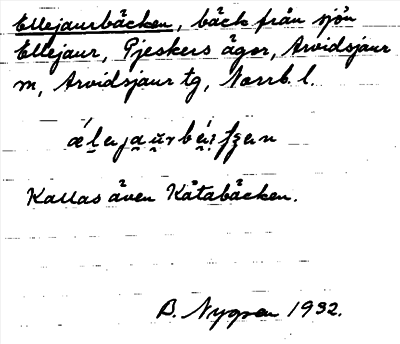 Ellejaurbäcken, bäck från sjön
Ellejaur, Pjeskers ägor, Arvidsjaur
m, Arvidsjaur tg, Norrb. l.
Kallas även Kåtabäcken.
B. Nygren 1932.